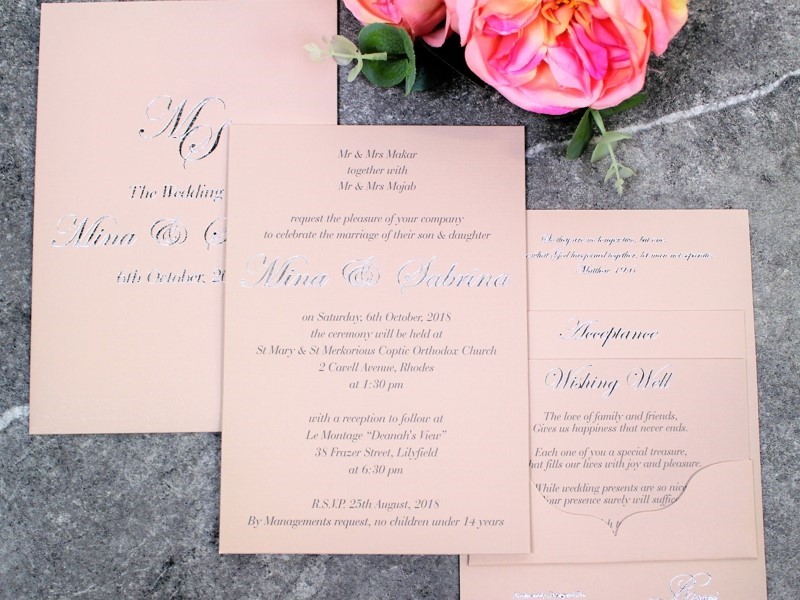 MS
The Wedding
Mina &
6th October, 20
Mr & Mrs Makar
together with
Mr & Mrs Mojab
request the pleasure of your company
to celebrate the marriage of their son & daughter
Mina & Sabrina
on Saturday, 6th October, 2018
the ceremony will be held at
St Mary & St Merkorious Coptic Orthodox Church
2 Cavell Avenue, Rhodes
at 1:30 pm
with a reception to follow at
Le Montage “Deanah's View”
38 Frazer Street, Lilyfield
at 6:30 pm
R.S.V.P. 25th August, 2018
By Managements request, no children under 14 years
So they are no longer two, but one.
what God has joined together, let man not separate.
Matthew 19:6
Acceptance
Wishing Well
The love of family and friends,
Gives us happiness that never ends.
Each one of you a special treasure,
hat fills our lives with joy and pleasure.
While wedding presents are so nice
Your presence surely will suffice